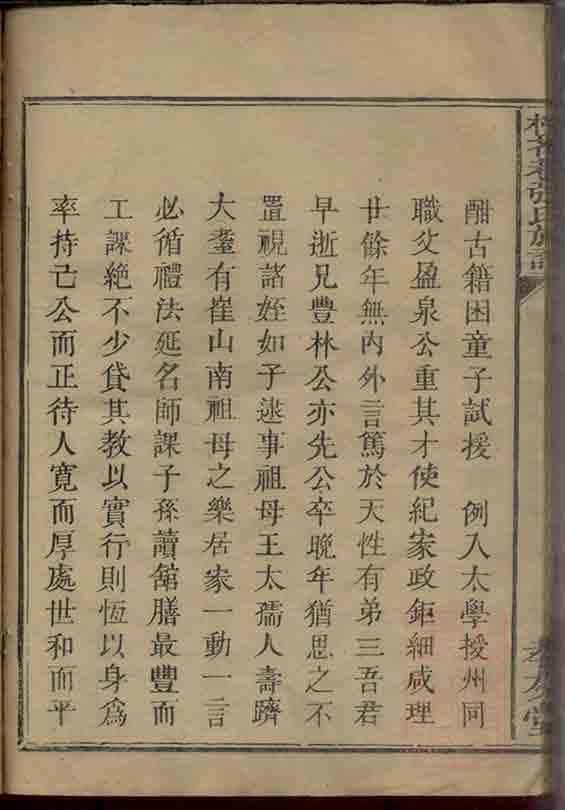 張氏族譜
孝友堂
酣古籍困童子試援　例入太學授州同
職父盈泉公重其才使紀家政鉅細咸理
廿餘年無內外言篤於天性有弟三吾君
早逝兄豐林公亦先公卒晚年猶思之不
置視諸姪如子逮事祖母王太孺人壽躋
大耋有崔山南祖母之樂居家一動一言
必循禮法延名師課子孫讀舘膳最豐而
工課絕不少貸其教以實行則恆以身爲
率持己公而正待人寬而厚處世和而平